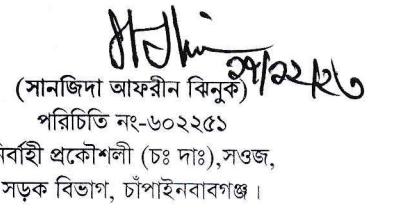 ২৭/১২/২৩
(সানজিদা আফরীন ঝিনুক)
পরিচিতি নং-৬০২২৫১
নির্বাহী প্রকৌশলী (চঃ দাঃ),সওজ,
সড়ক বিভাগ, চাঁপাইনবাবগঞ্জ।